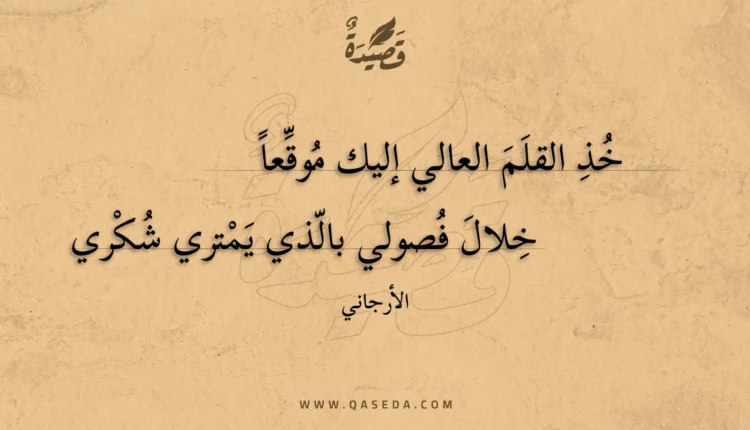 قَصِيْدَةٌ
خُذِ القلَمَ العالي إليك مُوقِّعاً
خِلالَ فُصولي بالّذي يَمْتري شُكْري
الأرجاني
WWW.QASEDA.COM